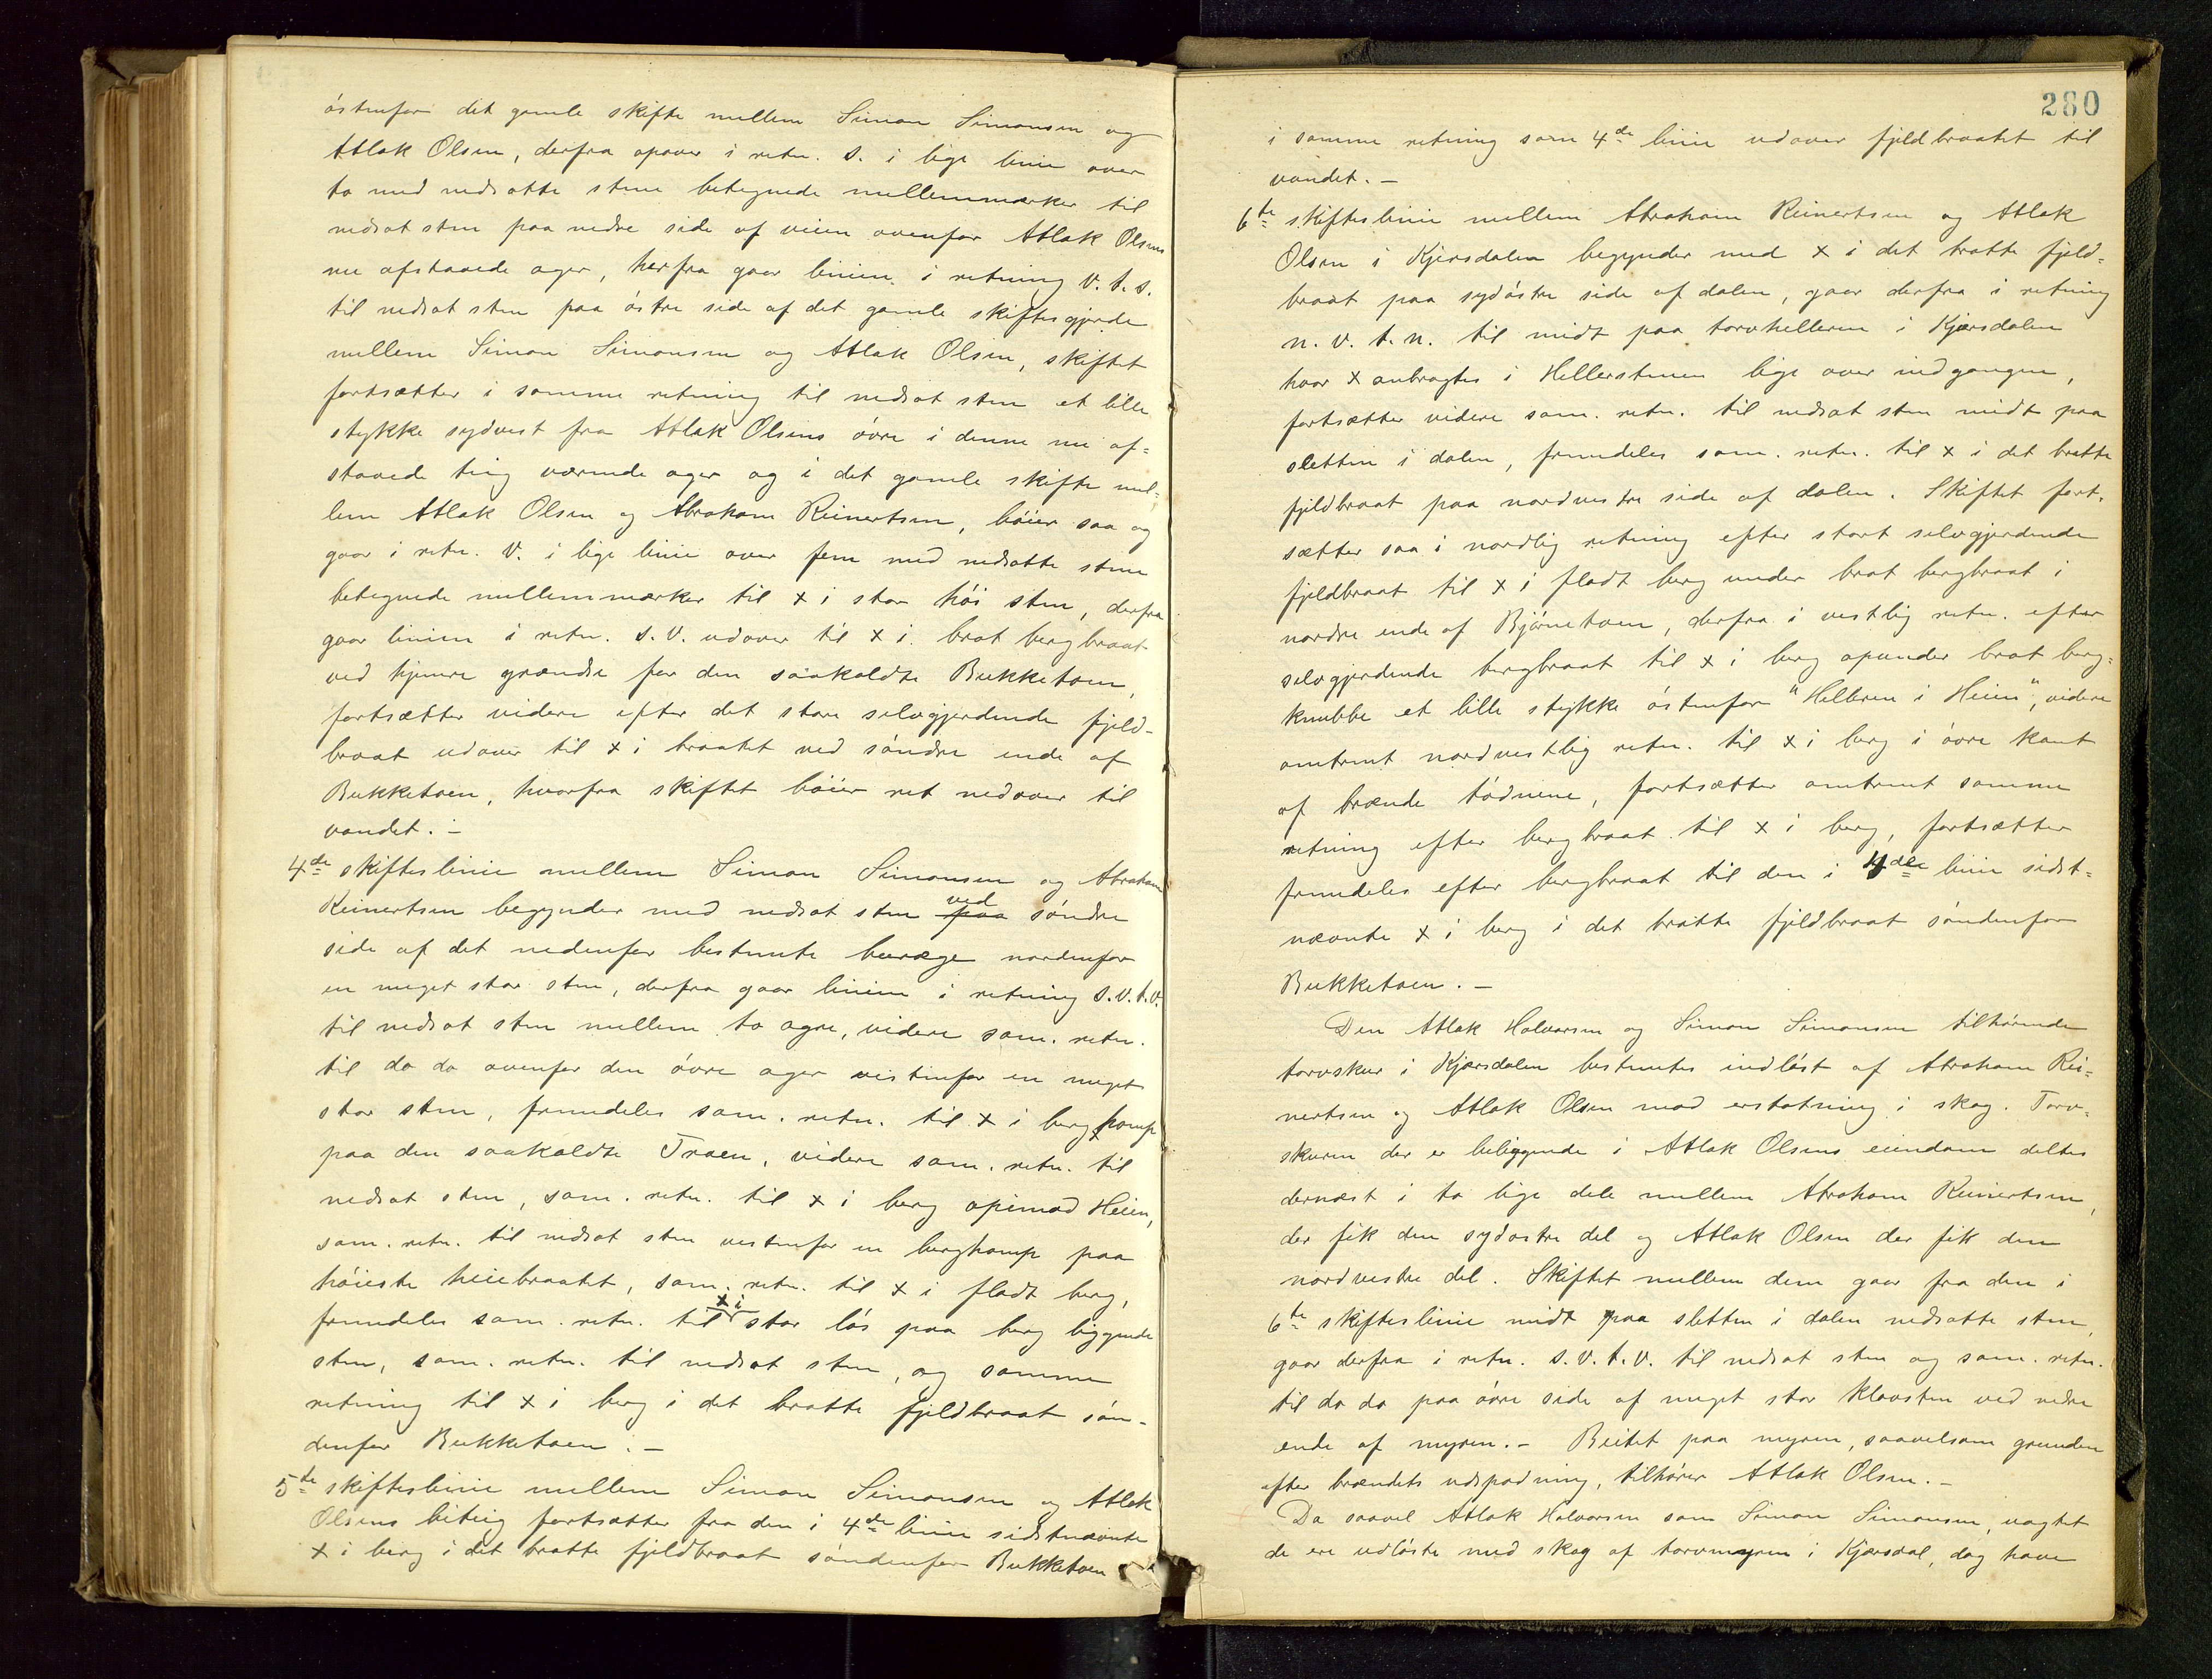 östenfor det gamle skifte mellem Simon Simonsen og
Atlak Olsen, derfra opover i retn. S. i lige linie over
to med nedsatte stene betegnede mellemmærker til
nedsat sten paa nedre side af veien ovenfor Atlak Olsens
nu afstaaede ager, herfra gaar linien i retning V. t. S.
til nedsat sten paa östre side af det gamle skiftesgjerde
mellem Simon Simonsen og Atlak Olsen, skiftet
fortsætter i samme retning til nedsat sten et lille
stykke sydvest fra Atlak Olsens övre i denne nu af=
staaede teig værende ager og i det gamle skifte mel=
lem Atlak Olsen og Abraham Reinertsen, böier saa og
gaar i retn. V. i lige linie over fem med nedsatte stene
betegnede mellemmærker til x i stor höi sten, derfra
gaar linien i retn. S.V. udover til x i brat bergbraat
ved hjemre grændse for den saakaldte Bukketoen,
fortsætter videre efter det store selvgjerdende fjeld-
braat udover til x i braatet ved söndre ende af
Bukketoen, hvorfra skiftet böier ret nedover til
vandet. –
4de skifteslinie mellem Simon Simonsen og Abraham
Reinertsen begynder med nedsat sten paa ved söndre
side af det nedenfor bestemte buræge nordenfor
en meget stor sten, derfra gaar linien i retning S.V.t.V.
til nedsat sten mellem to agre, videre sam. retn.
til do do ovenfor den övre ager vestenfor en meget
stor sten, fremdeles sam. retn. til x i berghamp
paa den saakaldte Traen, videre sam. retn. til
nedsat sten, sam. retn. til x i berg opimod Heien,
sam. retn. til nedsat sten vestenfor en berghamp paa
höieste heiebraatet, sam. retn. til x i fladt berg,
fremdeles sam. retn. til x i stor lös paa berg liggende
sten, sam. retn. til nedsat sten, og samme
retning til x i berg i det bratte fjeldbraat sön-
denfor Bukketoen. –
5te skifteslinie mellem Simon Simonsen og Atlak
Olsens biteig fortsætter fra den i 4de linie sidstnævnte
x i berg i det bratte fjeldbraat söndenfor Bukketoen
280
i samme retning som 4de linie udover fjeldbraatet til
vandet. –
6te skifteslinie mellem Abraham Reinertsen og Atlak
Olsen i Kjærsdalen begynder med x i det bratte fjeld=
braat paa sydöstre side af dalen, gaar derfra i retning
N. V. t. N. til midt paa torvhelleren i Kjærsdalen
hvor x anbragtes i Hellerstenen lige over indgangen,
fortsætter videre sam. retn. til nedsat sten midt paa
sletten i dalen, fremdeles sam. retn. til x i det bratte
fjeldbraat paa nordvestre side af dalen. Skiftet fort=
sætter saa i nordlig retning efter stort selvgjerdende
fjeldbraat til x i fladt berg under brat bergbraat i
nordre ende af Björnetoen, derfra i vestlig retn. efter
selvgjerdende bergbraat til x i berg opunder brat berg=
knubbe et lille stykke östenfor "Helleren i Heien", videre
omtrent nordvestlig retn. til x i berg i övre kant
af brænde tödnene, fortsætter omtrent samme
retning efter bergbraat til x i berg, fortsætter
fremdeles efter bergbraat til den i 4de linie sidst=
nævnte x i berg i det bratte fjeldbraat söndenfor
Bukketoen. –
Den Atlak Halvorsen og Simon Simonsen tilhörende
torvskur i Kjærsdalen bestemtes indlöst af Abraham Rei=
nertsen og Atlak Olsen mod erstatning i skog. Torv=
skuren der er beliggende i Atlak Olsens eiendom deltes
dernæst i to lige dele mellem Abraham Reinertsen,
der fik den sydöstre del og Atlak Olsen der fik den
nordvestre del. Skiftet mellem dem gaar fra den i
6te skifteslinie midt paa sletten i dalen nedsatte sten,
gaar derfra i retn. S.V.t.V. til nedsat sten og sam. retn.
til do do paa övre side af meget stor klovsten ved nedre
ende af myren. – Beitet paa myren, saavelsom grunden
efter brændets udspadning, tilhörer Atlak Olsen. –
Da saavel Atlak Halvorsen som Simon Simonsen, uagtet
de ere udlöste med skog af torvmyren i Kjærsdal, dog have